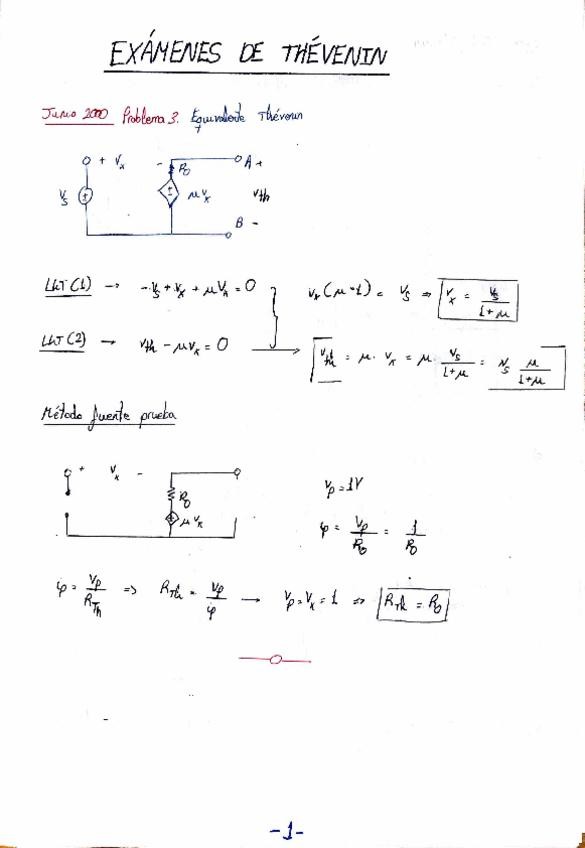 EXÁMENES DE THÉVENIN
Junio 2000 Problema 3. Equivalente Thévenin
+ Vx - R0 A +
Vs μVx Vth
B -
LKT(1) → -Vs + Vx + μVx = 0 Vx(μ+1) = Vs ⇒ Vx = Vs/(1+μ)
LKT(2) → Vth - μVx = 0 → Vth = μ · Vx = μ · Vs/(1+μ) = Vs μ/(1+μ)
Método fuente prueba
+ Vx - R0 μVx
Vp = 1V
ip = Vp/R0 = 1/R0
ip = Vp/RTh ⇒ RTh = Vp/ip → Vp = Vx = 1 ⇒ RTh = R0
-1-